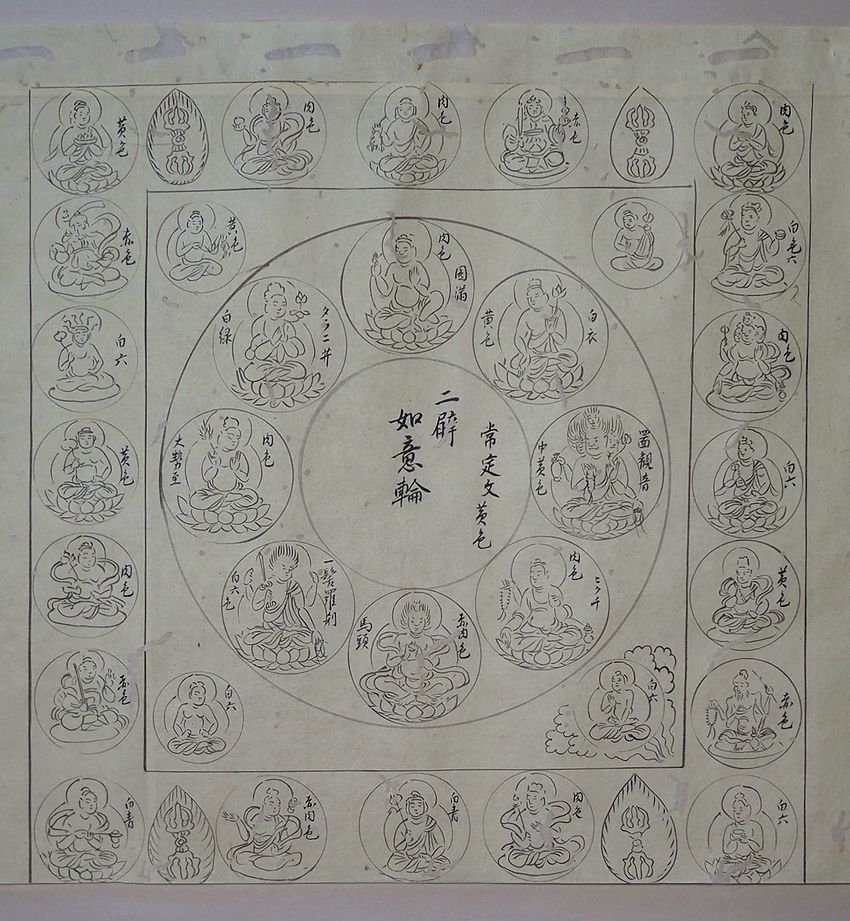 黄色
肉色
肉色
赤色
肉色
黄色
赤色
白六
黄色
肉色
赤色
白青
赤肉色
白青
肉色
白六
白色六
肉色
白六
黄色
赤色
肉色
圓満
白衣
黄色
白緑
タラニ井
大勢至
肉色
一髻羅刹
白六色
馬頭
赤肉色
肉色
ヒクチ
中黄色
白六
白六
二臂
如意輪
常定文黄色